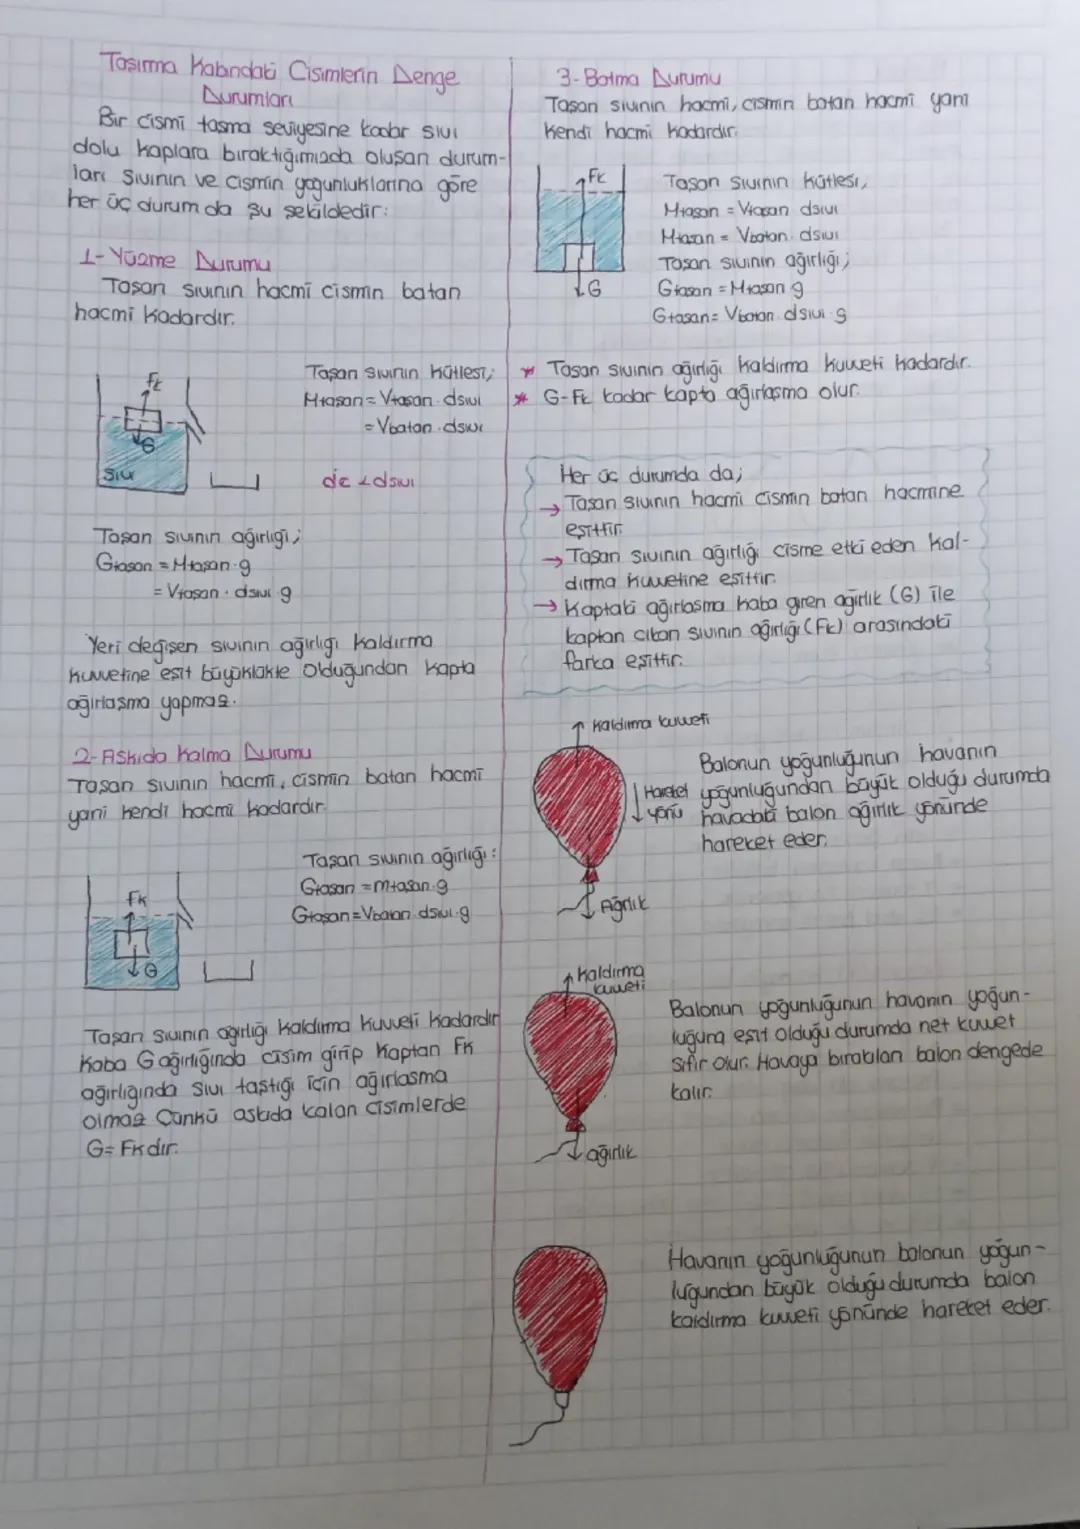 Taşırma Kabındaki Cisimlerin Denge
Durumları
Bir cismi taşma seviyesine kadar sıvı
dolu kaplara bıraktığımızda oluşan durum-
ları sıvının ve cismin yoğunluklarına göre
her üç durum da şu şekildedir:
1- Yüzme Durumu
Taşan sıvının hacmi cismin batan
hacmi kadardır.
Fk
G
Sıvı
Taşan sıvının kütlesi;
Mtaşan = Vtaşan . dsıvı
= Vbatan . dsıvı
dc < dsıvı
Taşan sıvının ağırlığı;
Gtaşan = Mtaşan . g
= Vtaşan . dsıvı g
Yeri değişen sıvının ağırlığı kaldırma
kuvvetine eşit büyüklükte olduğundan kapta
ağırlaşma yapmaz.
2- Askıda Kalma Durumu
Taşan sıvının hacmi, cismin batan hacmi
yani kendi hacmi kadardır.
Fk
G
Taşan sıvının ağırlığı:
Gtaşan = mtaşan . g
Gtaşan = Vbatan . dsıvı . g
Taşan sıvının ağırlığı kaldırma kuvveti kadardır
Kaba G ağırlığında cisim girip kaptan Fk
ağırlığında sıvı taştığı için ağırlaşma
olmaz Çünkü askıda kalan cisimlerde
G= Fk dır.
3- Batma Durumu
Taşan sıvının hacmi, cismin batan hacmi yani
kendi hacmi kadardır.
Fk
G
Taşan sıvının kütlesi,
Mtaşan = Vtaşan dsıvı
Mtaşan = Vbatan . dsıvı
Taşan sıvının ağırlığı;
Gtaşan = Mtaşan g
Gtaşan = Vbatan . dsıvı . g
* Taşan sıvının ağırlığı kaldırma kuvveti kadardır.
* G-Fk kadar kapta ağırlaşma olur.
Her üç durumda da;
→ Taşan sıvının hacmi cismin batan hacmine
eşittir.
→ Taşan sıvının ağırlığı cisme etki eden kal-
dırma kuvvetine eşittir.
→ Kaptaki ağırlaşma kaba giren ağırlık (G) ile
kaptan çıkan sıvının ağırlığı (Fk) arasındaki
farka eşittir.
Kaldırma kuvveti
Hareket
yönü
Ağırlık
Balonun yoğunluğunun havanın
yoğunluğundan büyük olduğu durumda
havadaki balon ağırlık yönünde
hareket eder.
Kaldırma
kuvveti
ağırlık
Balonun yoğunluğunun havanın yoğun-
luğuna eşit olduğu durumda net kuvvet
sıfır olur. Havaya bırakılan balon dengede
kalır.
Havanın yoğunluğunun balonun yoğun-
luğundan büyük olduğu durumda balon
kaldırma kuvveti yönünde hareket eder.